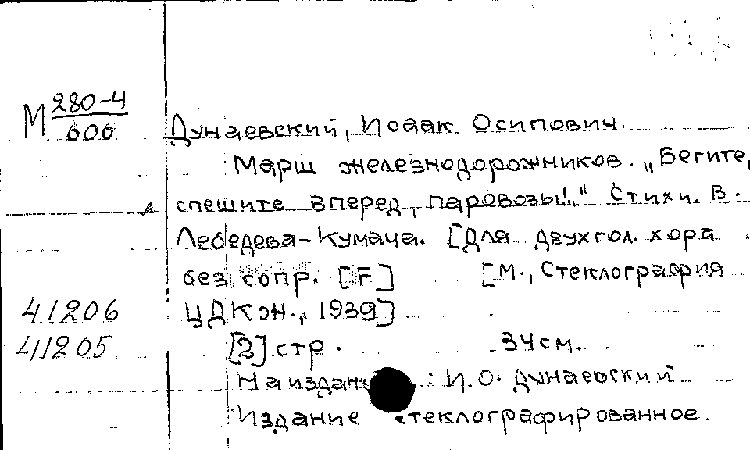 М 280-4
606
Дунаевский, Исаак Осипович.
Марш железнодорожников. „Бегите,
спешите вперед, паровозы!.." Стихи В.
Лебедева-Кумача. [Для двухгол. хора
без сопр. [F] [М., Стеклография
41206 ЦДКЖ., 1939]
41205 [2] стр. 34 см.
На : И.О. Дунаевский
Издание стеклографированное.